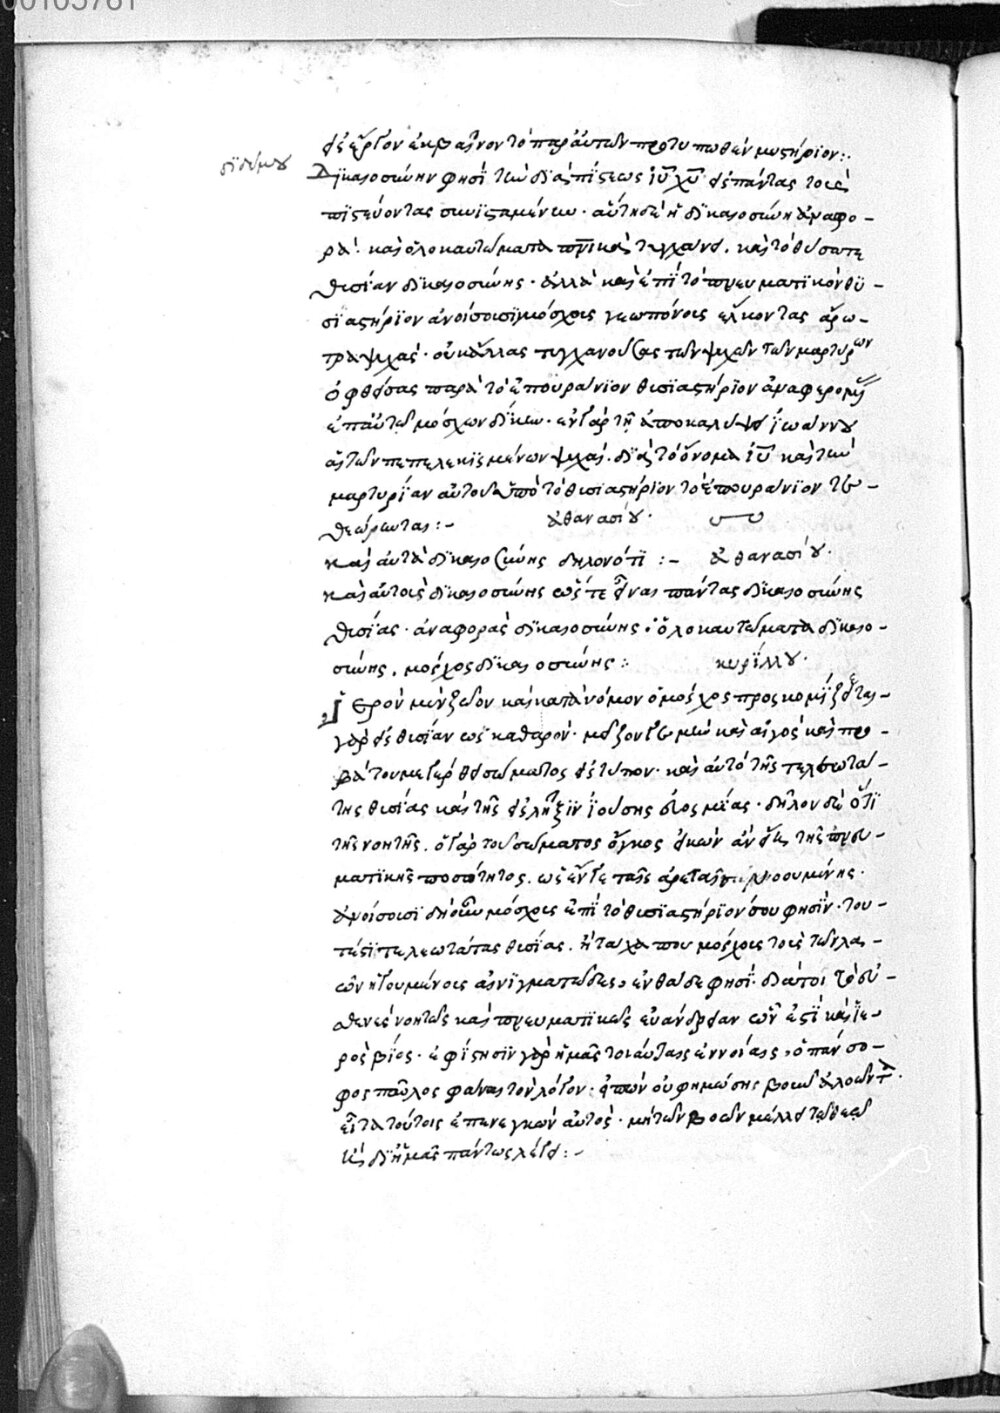 00105781
εἰς ἔργον ἐκβαῖνον τὸ παρ' αὐτῶν προτυπωθὲν μυστήριον :
διδύμου
Δικαιοσύνην φησὶ τὴν διὰ πίστεως ἰῦ χῦ εἰς πάντας τοὺς
πιστεύοντας συνισταμένην· αὕτη δὲ ἡ δικαιοσύνη ἀναφο-
ρὰ καὶ ὁλοκαυτώματα πνικὰ τυγχάνει. καὶ τὸ θύσατε
θυσίαν δικαιοσύνης· ἀλλὰ καὶ ἐπὶ τὸ πνευματικὸν θυ-
σιαστήριον ἀνοίσουσι μόσχους γεωπόνους ἕλκοντας ἄρο-
τρα ψυχάς· οὐκ ἄλλας τυγχανούσας τῶν ψυχῶν τῶν μαρτύρων
ὀφθείσας παρὰ τὸ ἐπουράνιον θυσιαστήριον ἀναφερομένας
ἐπ' αὐτῷ μόσχων δίκην· ἐν γὰρ τῇ ἀποκαλύψει ἰωάννου
αἱ τῶν πεπελεκισμένων ψυχαὶ διὰ τὸ ὄνομα ἰῦ καὶ τὴν
μαρτυρίαν αὐτοῦ ὑπὸ τὸ θυσιαστήριον τὸ ἐπουράνιον
θεωροῦνται :- ἀθανασίου·
καὶ αὐτὰ δικαιοσύνης δηλονότι :- ἀθανασίου·
καὶ αὐτοὶ δικαιοσύνης ὥστε εἶναι πάντας δικαιοσύνης
θυσίας· ἀναφορὰς δικαιοσύνης· ὁλοκαυτώματα δικαιο-
σύνης, μόσχος δικαιοσύνης : κυρίλλου·
Ἱερὸν μὲν ζῶον καὶ κατὰ νόμον ὁ μόσχος προσκομίζεται
γὰρ εἰς θυσίαν ὡς καθαρόν· μεῖζον μὲν καὶ αἰγὸς καὶ προ-
βάτου μεγέρθει σώματος εἰς τύπον· καὶ αὐτὸ τῆς τελεωτά-
της θυσίας καὶ τῆς εἰς λῆξιν ἰούσης ὁσίας· δῆλον δὲ ὅτι
τῆς νοητῆς. ὁ γὰρ τοῦ σώματος ὄγκος εἰκὼν ἂν εἴη τῆς πνευ-
ματικῆς ποσότητος. ὡς ἔν γε ταῖς ἀρεταῖς νοουμένης·
ἀνοίσουσι δὴ οὖν μόσχους ἐπὶ τὸ θυσιαστήριόν σου φησίν· του-
τέστι τελεωτάτας θυσίας. ἢ τάχα που μόσχους τοὺς τῶν λα-
ῶν ἡγουμένους αἰνιγματωδῶς ἐνθάδε φησί· διά τοι τὸ εὐ-
σθενὲς νοητῶς καὶ πνευματικῶς εὐανδρίαν ὧν ἐστὶ καὶ ἱε-
ρὸς βίος· ἐφίστησιν γὰρ ἡμᾶς τοιαύταις ἐννοίαις, ὁ πάνσο-
φος παῦλος φάναι τὸν λόγον· εἰπὼν οὐ φιμώσεις βοῦν ἀλοῶντα.
εἶτα τούτοις ἐπενεγκὼν αὐτός· μὴ τῶν βοῶν μέλλει τῷ θεῷ
ἢ δι' ἡμᾶς πάντως λέγει :-